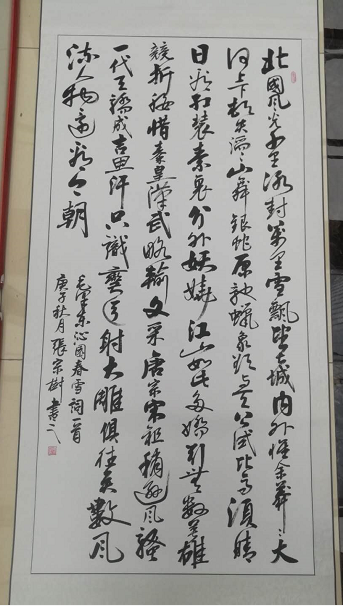 北國风光千里冰封萬里雪飘望长城内外惟余莽〻大
河上下顿失滔〻山舞银蛇原驰蜡象欲与天公试比高须晴
日看红装素裹分外妖娆江山如此多嬌引無数英雄
競折腰惜秦皇漢武略输文采唐宗宋祖稍逊风騷
一代天骄成吉思汗只識彎弓射大雕俱往矣數风
流人物还看今朝
毛泽东沁园春雪词一首
庚子秋月張宗树書之